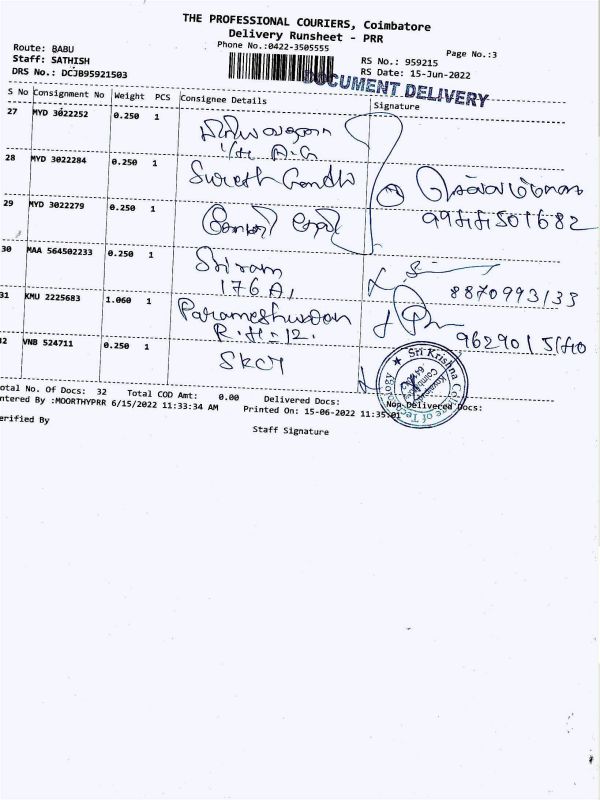 THE PROFESSIONAL COURIERS, Coimbatore
Delivery Runsheet - PRR
Phone No.:0422-3505555
Page No.:3
Route: BABU
Staff: SATHISH
DRS No.: DCJB95921503
RS No.: 959215
RS Date: 15-Jun-2022
DOCUMENT DELIVERY
S No Consignment No Weight PCS Consignee Details Signature
27 MYD 3022252 0.250 1
28 MYD 3022284 0.250 1 Suresh Gandhi
29 MYD 3022279 0.250 1
30 MAA 564502233 0.250 1 Sriram
176 A,
8870993133
31 KMU 2225683 1.060 1 Parameshwaran
R.H-12.
VNB 524711 0.250 1 SKCT
Sri Krishna College of Technology
Coimbatore
otal No. Of Docs: 32 Total COD Amt: 0.00 Delivered Docs: Non-Delivered Docs:
ntered By :MOORTHYPRR 6/15/2022 11:33:34 AM Printed On: 15-06-2022 11:35:01
erified By
Staff Signature